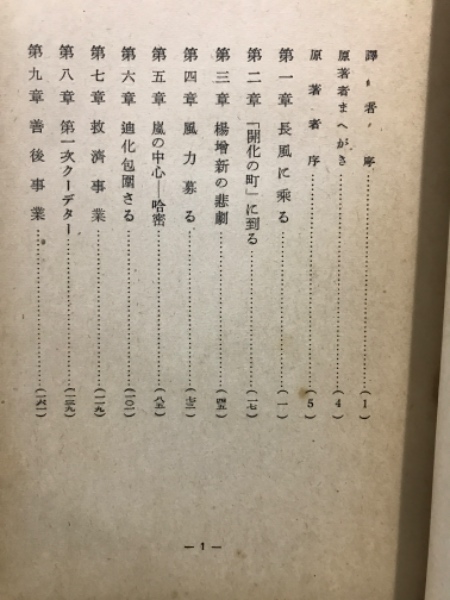 譯者ノ序……(1)
原著者まへがき……(4)
原著者序……(5)
第一章 長風に乗る……(一)
第二章 「開化の町」に到る……(一七)
第三章 楊增新の悲劇……(四五)
第四章 風力募る……(七二)
第五章 嵐の中心―哈密……(八五)
第六章 迪化包圍さる……(一〇一)
第七章 救濟事業……(一一九)
第八章 第一次クーデター……(一三九)
第九章 善後事業……(一六一)
— 1 —